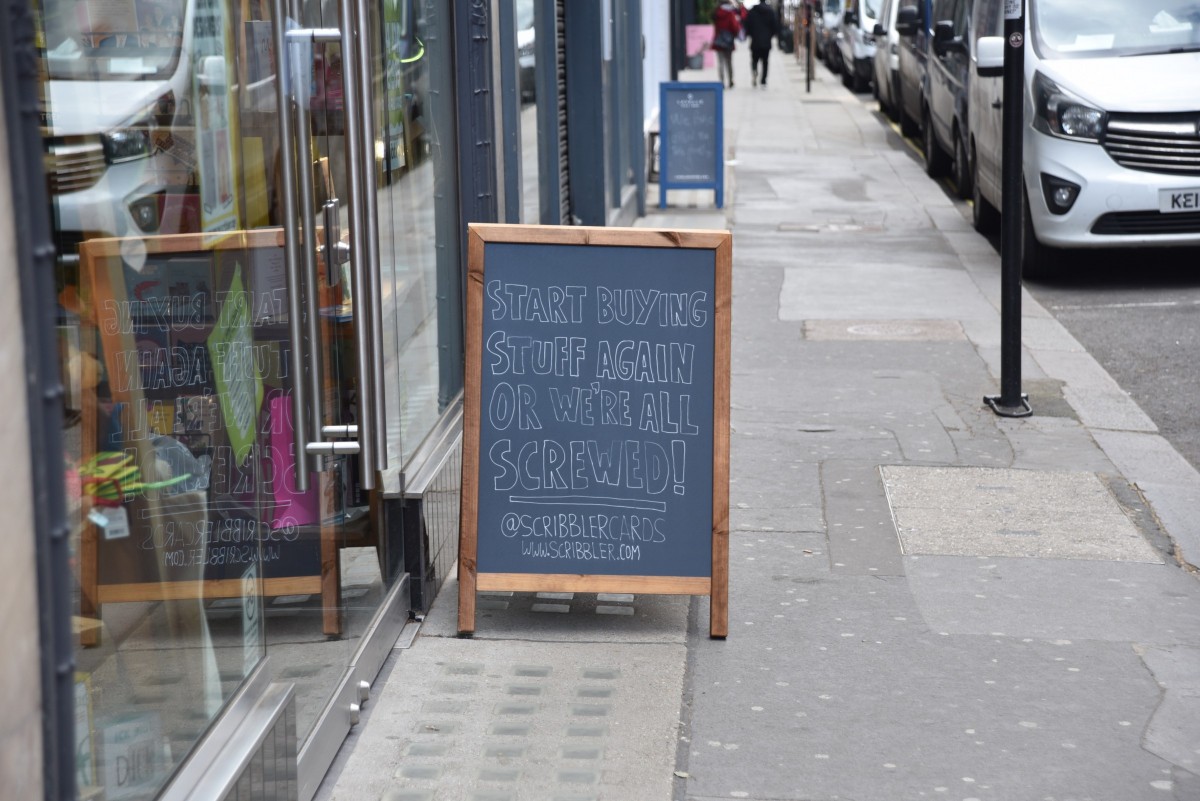 START BUYING
STUFF AGAIN
OR WE'RE ALL
SCREWED!
@SCRIBBLERCARDS
WWW.SCRIBBLER.COM